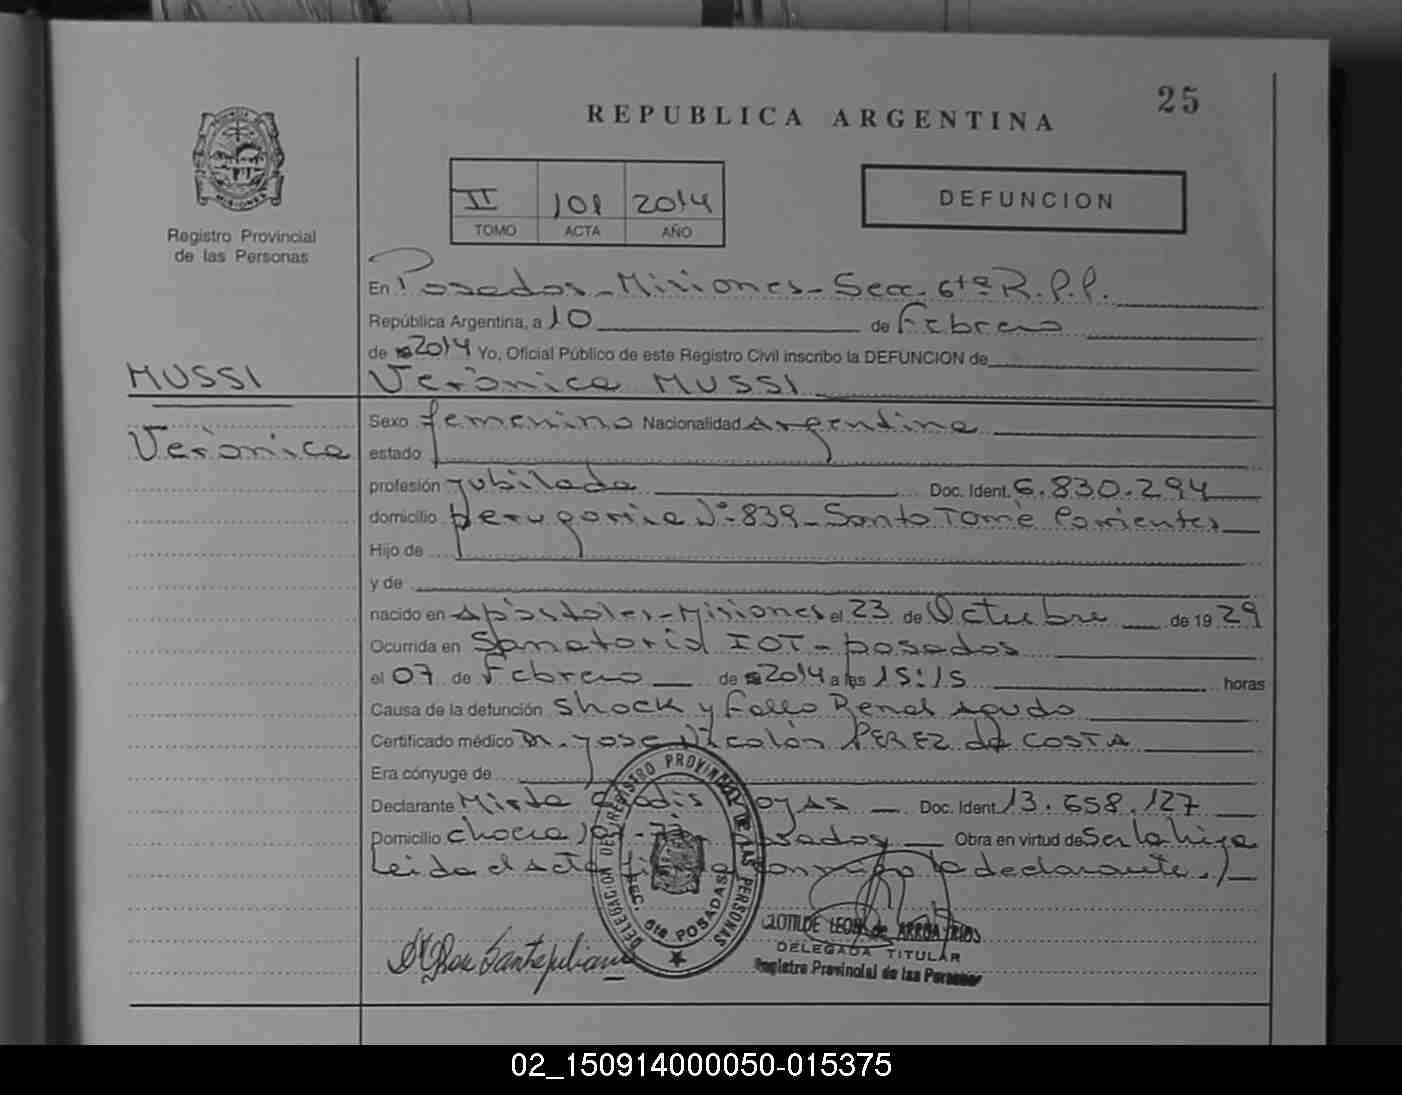 25
REPUBLICA ARGENTINA
II 101 2014
TOMO ACTA AÑO
DEFUNCION
MISIONES
Registro Provincial
de las Personas
En Posadas - Misiones - Secc. 6ta R.P.P.
República Argentina, a 10 de Febrero
de 2014 Yo, Oficial Público de este Registro Civil inscribo la DEFUNCION de
MUSSI
Verónica MUSSI
Verónica
Sexo femenino Nacionalidad Argentina
estado
profesión jubilada Doc. Ident. 6.830.294
domicilio Nº 839 - Santo Tomé Corrientes
Hijo de
y de
nacido en Apóstoles - Misiones el 23 de Octubre de 19 29
Ocurrida en Sanatorio IOT - posadas
el 07 de Febrero de 2014 a las 15:15 horas
Causa de la defunción Shock y Fallo Renal Agudo
Certificado médico Dr. Jose Nicolás PEREZ da COSTA
Era cónyuge de
Declarante Mirta Doc. Ident. 13.658.127
Domicilio Posadas Obra en virtud de Ser la hija
Leida el Acta la declarante
DELEGACION DEL REGISTRO PROVINCIAL DE LAS PERSONAS
SEC. 6ta POSADAS
CLOTILDE LEON de
DELEGADA TITULAR
Registro Provincial de las Personas
02_150914000050-015375